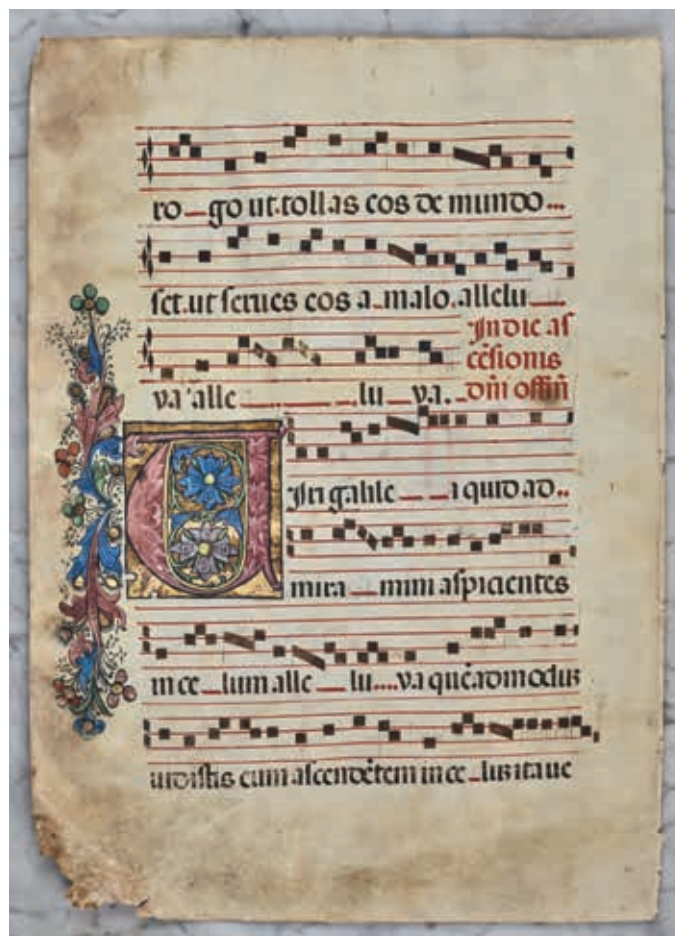 ro _ go ut.tollas eos de mundo...
set.ut serues eos a_malo.allelu __
In die as
cẽsionis
dñi offiñ
va alle _ _ _ _ .lu _ va.
Viri galile _ _ i quid ad..
mira _ mini aspicientes
in ce _ lum alle _ lu....va quẽadmodus
uidistis eum ascendẽtem in ce _ lus ita ue